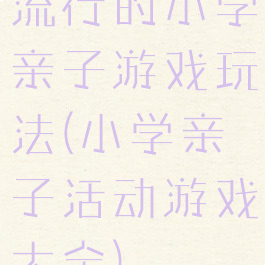 流行的小学
亲子游戏玩
法(小学亲
子活动游戏
大全)